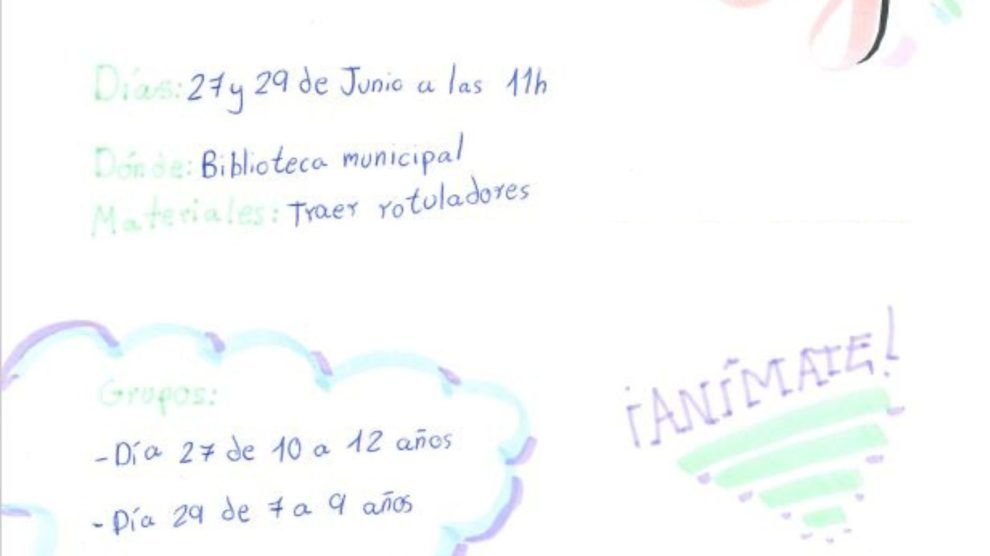 Días: 27 y 29 de Junio a las 11h
Dónde: Biblioteca municipal
Materiales: Traer rotuladores
Grupos:
- Día 27 de 10 a 12 años
- Día 29 de 7 a 9 años
¡ANÍMATE!